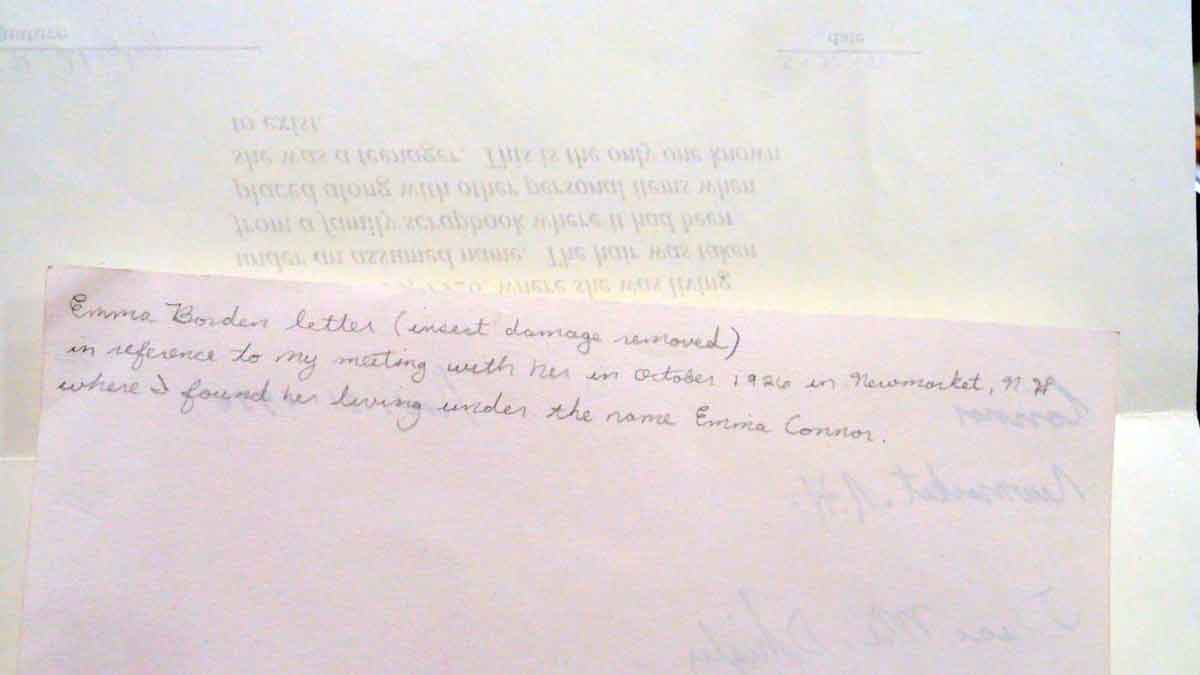 date
to exist.
she was a teenager. This is the only one known
placed along with other personal items when
from a family scrapbook where it had been
under an assumed name. The hair was taken
where she was living
Emma Borden letter (insect damage removed)
in reference to my meeting with her in October 1926 in Newmarket, N H
where I found her living under the name Emma Connor.
Connor
Newmarket. N.H.
Dear Mr.